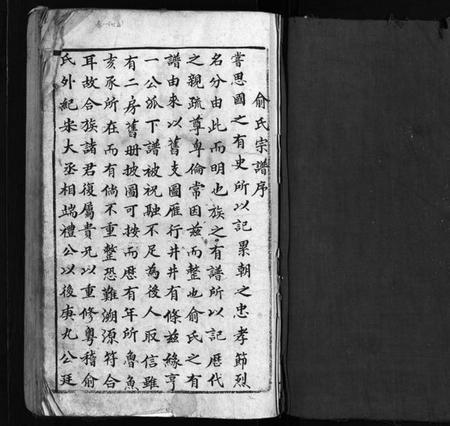 俞氏宗譜序
嘗思國之有史所以記累朝之忠孝節烈
名分由此而明也族之有譜所以記歴代
之親疏尊卑倫常因茲而整也俞氏之有
譜由來以舊支圖雁行井井有條茲緣亨
一公派下譜被祝融不足為後人取信雖
有二房舊册披圖可按而歴有年所魯魚
亥豕所在而有倘不重整恐難溯源符合
耳故合族諸君復屬貴兄以重修粵稽俞
氏外紀宋大丞相端禮公以後庚九公廷